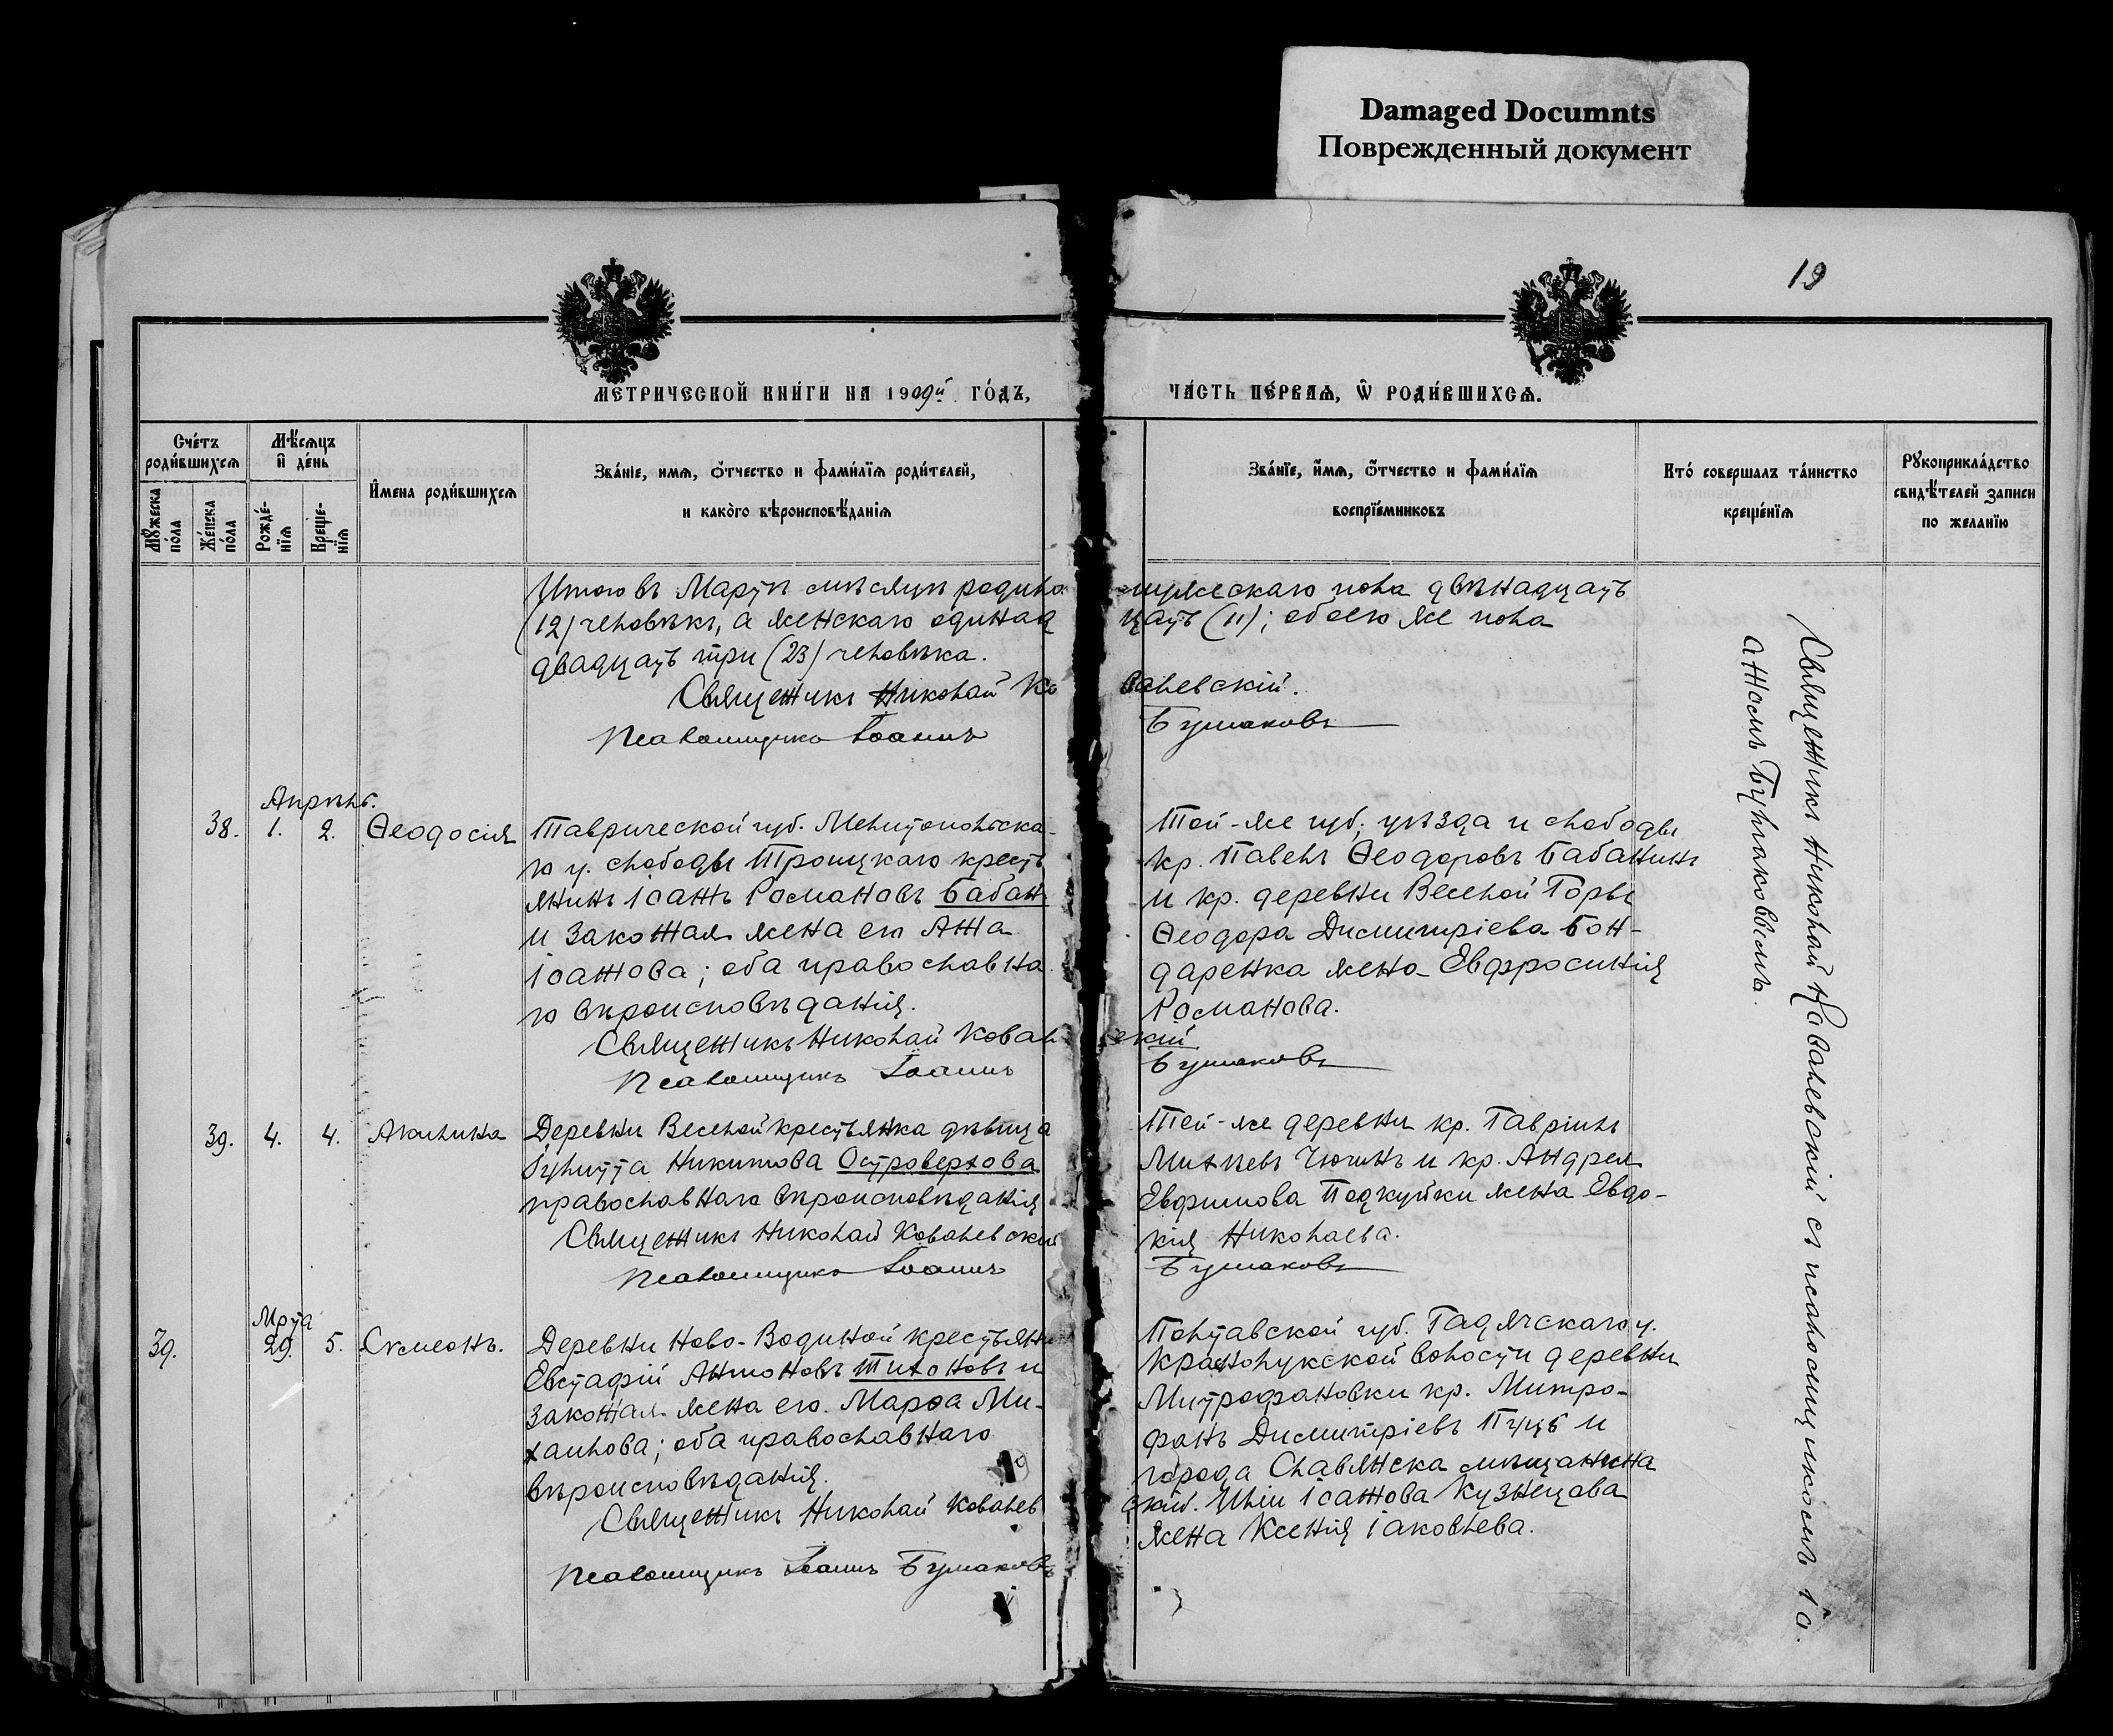 Damaged Documnts
Поврежденный документ
19
МЕТРИЧЕСКОЙ КНИГИ НА 1909й ГОДЪ,
ЧАСТЬ ПЕРВАЯ, Ѿ РОДИВШИХСЯ.
Счетъ родившихся
Мѣсяцъ и день
Мужеска пола
Женска пола
Рожденія
Крещенія
Имена родившихся
Званіе, имя, отчество и фамилія родителей,
и какого вѣроисповѣданія
Званіе, имя, отчество и фамилія
воспріемниковъ
Кто совершалъ таинство
крещенія
Рукоприкладство
свидѣтелей записи
по желанію
Итого въ Мартѣ мѣсяцѣ родило
мужескаго пола двѣнадцать
(12) человѣкъ, а женскаго одинад
цать (11); обоего же пола
двадцать три (23) человѣка.
Священникъ Николай Ко
валевскій.
Псаломщикъ Іоаннъ
Булмаковъ
Апрѣль.
38. 1. 2. Ѳеодосія
Таврической губ. Мелитопольска-
го у. слободы Троицкаго кресть
янинъ Іоаннъ Романовъ Бабан
и законная жена его Анна
Іоаннова; оба православна
го вѣроисповѣданія.
Священникъ Николай Ковал
Псаломщикъ Іоаннъ
Той-же губ., уѣзда и слободы
кр. Павелъ Ѳеодоровъ Бабанинъ
и кр. деревни Веселой Горы
Ѳеодора Димитріева Бон-
даренка жена Евфросинія
Романова.
скій
Булмаковъ
39. 4. 4. Акилина
Деревни Веселой крестьянка дѣвица
Іулитта Никитова Островерхова
православнаго вѣроисповѣданія
Священникъ Николай Ковалевскій
Псаломщикъ Іоаннъ
Той-же деревни кр. Гавріилъ
Михѣевъ Чючинъ и кр. Андрея
Евфимова Подкуйки жена Евдо-
кія Николаева.
Булмаковъ
Мрта
39. 29. 5. Сѵмеонъ.
Деревни Ново-Водиной крестьяни
Евстафій Антоновъ Тихоновъ и
законная жена его Марѳа Ми-
хаилова; оба православнаго
вѣроисповѣданія.
Священникъ Николай Ковалев
Псаломщикъ Іоаннъ Булмаковъ
Полтавской губ. Гадячскаго у.
Краснолукской волости деревни
Митрофановки кр. Митро-
фанъ Димитріевъ Пуцъ и
города Славянска мѣщанина
скій. Иліи Іоаннова Кузнецова
жена Ксенія Іаковлева.
Священникъ Николай Ковалевскій съ псаломщикомъ Іо.
анномъ Булмаковымъ.